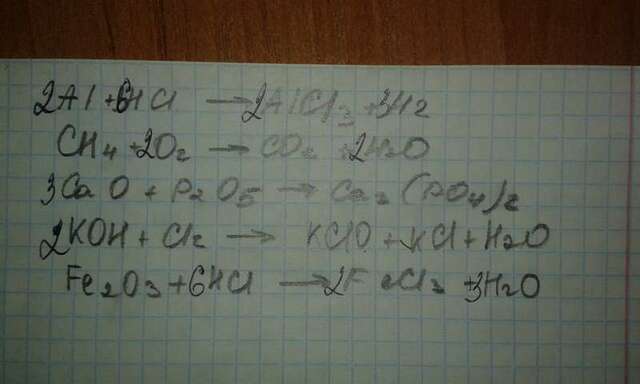 2Al + 6HCl → 2AlCl3 + 3H2
CH4 + 2O2 → CO2 + 2H2O
3CaO + P2O5 → Ca3(PO4)2
2KOH + Cl2 → KClO + KCl + H2O
Fe2O3 + 6HCl → 2FeCl3 + 3H2O